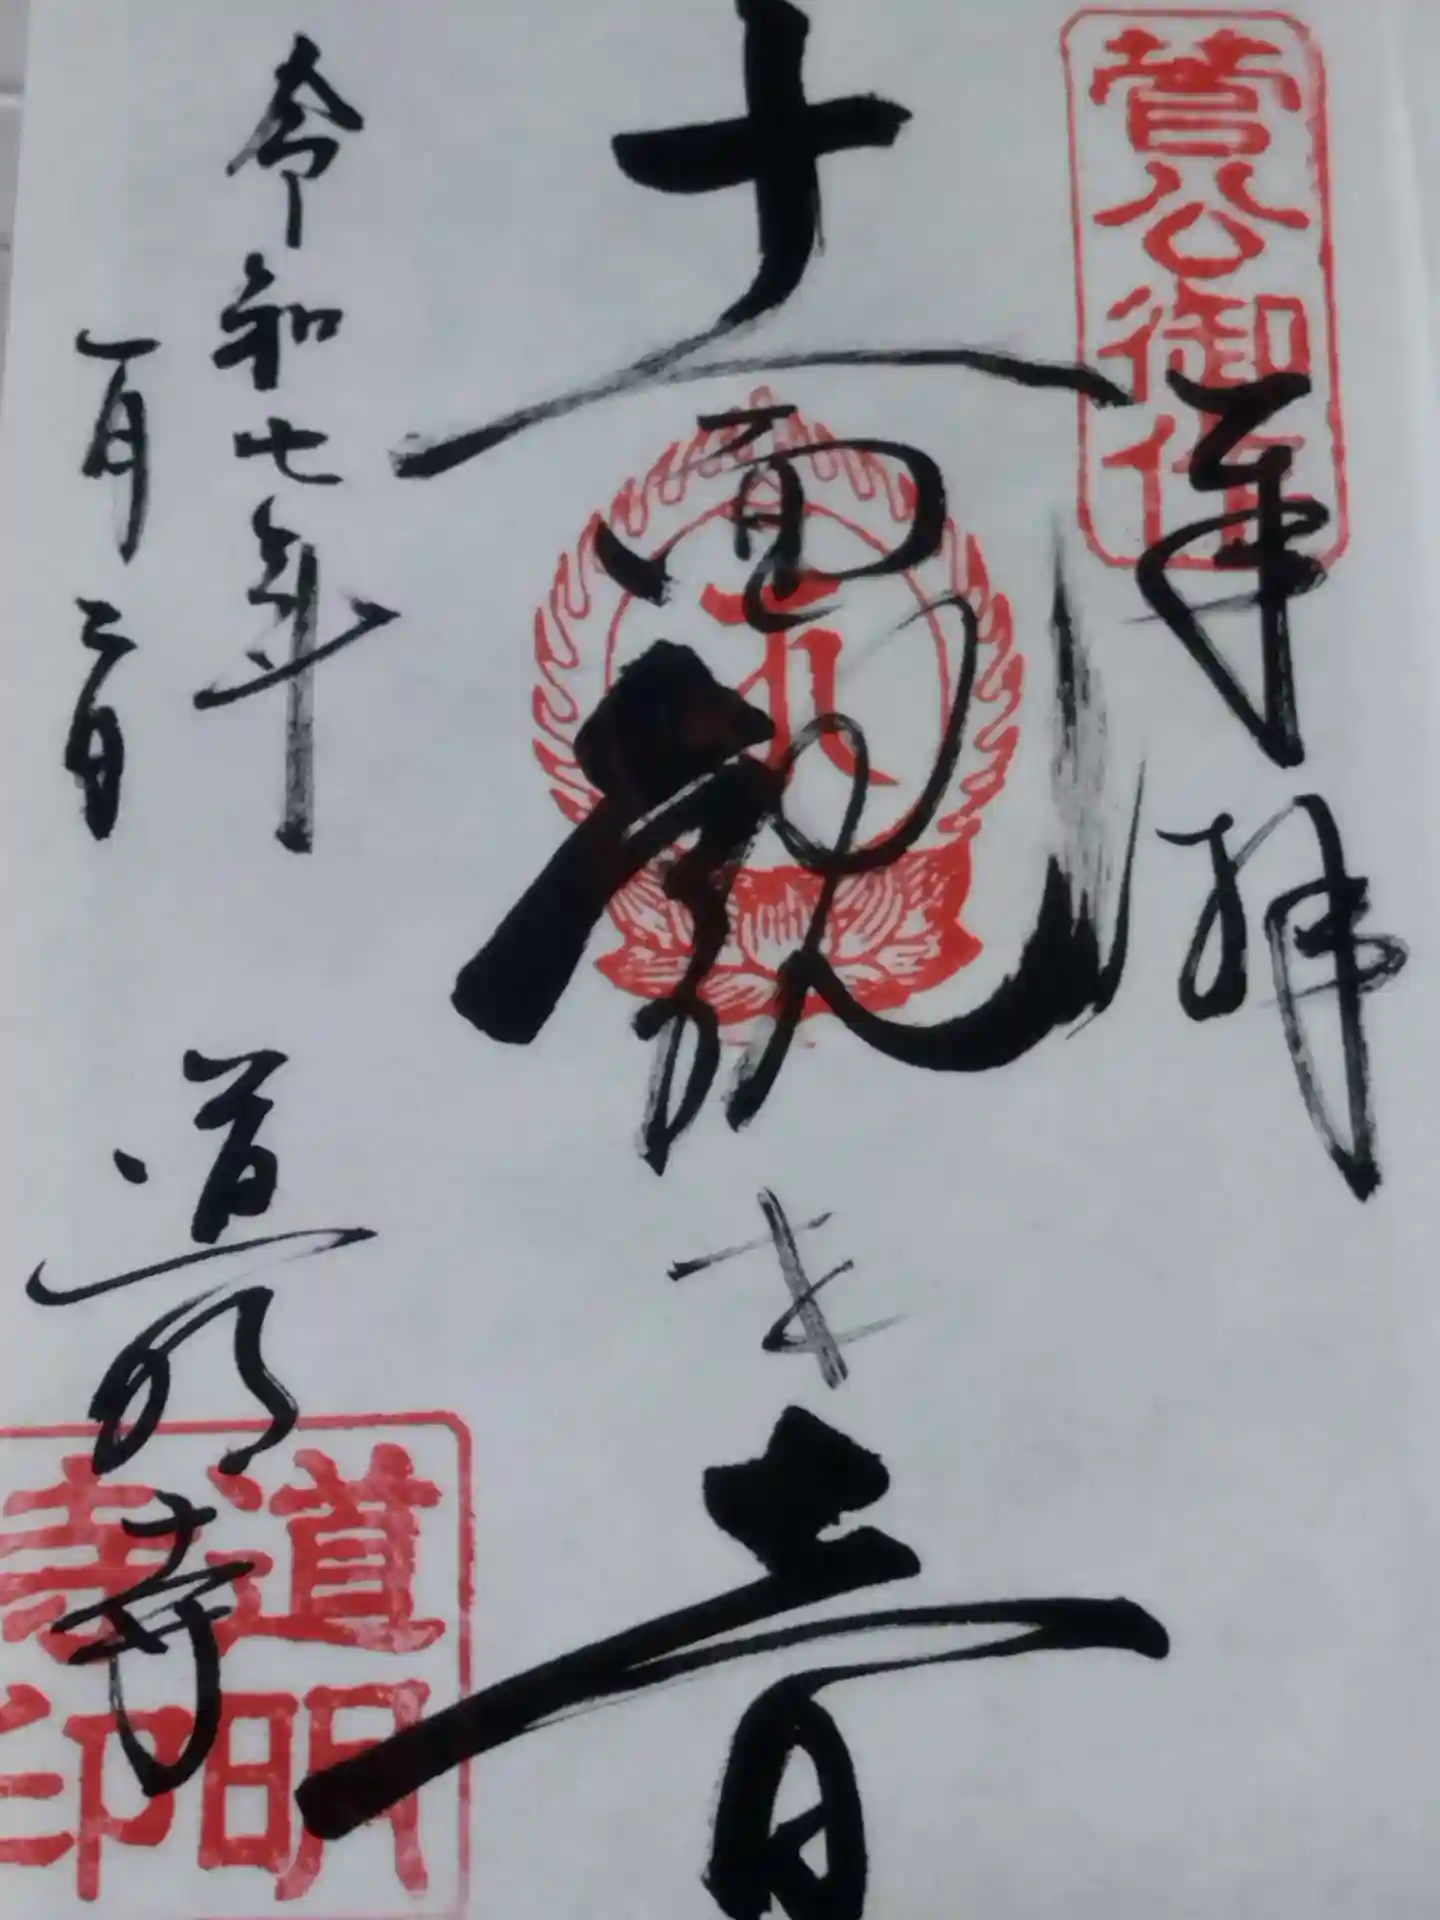 菅公御作
奉拝
十一面観世音
令和七年
一月二日
道明寺
道明寺印